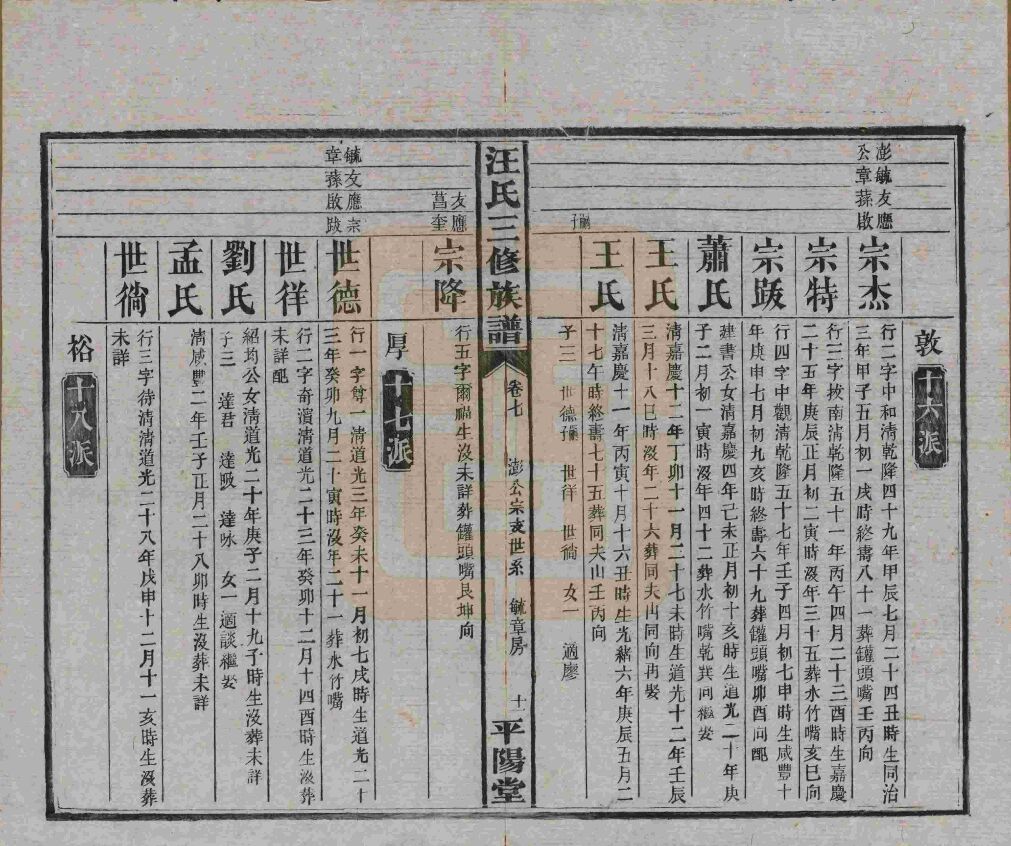 敦 十六派
彭毓友應
公章蓀啟
宗杰
行二字中和清乾隆四十九年甲辰七月二十四丑時生同治
三年甲子五月初一戌時終壽八十一葬罐頭嘴壬丙向
宗特
行三字拔南清乾隆五十一年丙午四月二十三酉時生嘉慶
二十五年庚辰正月初二寅時沒年三十五葬水竹嘴亥巳向
宗䟦
行四字中觀清乾隆五十七年壬子四月初七申時生咸豐十
年庚申七月初九亥時終壽六十九葬罐頭嘴卯酉向配
蕭氏
建書公女清嘉慶四年己未正月初十亥時生道光二十年庚
子二月初一寅時沒年四十二葬水竹嘴乾巽向繼娶
王氏
清嘉慶十二年丁卯十一月二十七未時生道光十二年壬辰
三月十八巳時沒年二十六葬同夫山同向再娶
王氏
清嘉慶十一年丙寅十月十六丑時生光緒六年庚辰五月二
十七午時終壽七十五葬同夫山壬丙向
子三 世德 世徉 世徜 女一 適廖
汪氏三修族譜 卷七 澎公宗支世系 毓章房 十一 平陽堂
友應
菖奎
宗降
行五字爾福生沒未詳葬罐頭嘴艮坤向
厚 十七派
毓友應宗
章蓀啟䟦
世德
行一字尊一清道光三年癸未十一月初七戌時生道光二十
三年癸卯九月二十寅時沒年二十一葬水竹嘴
世徉
行二字奇濱清道光二十三年癸卯十二月十四酉時生沒葬
未詳配
劉氏
紹均公女清道光二十年庚子二月十九子時生沒葬未詳
子三 達君 達畈 達咏 女一適談繼娶
孟氏
清咸豐二年壬子正月二十八卯時生沒葬未詳
世徜
行三字待清清道光二十八年戊申十二月十一亥時生沒葬
未詳
裕 十八派